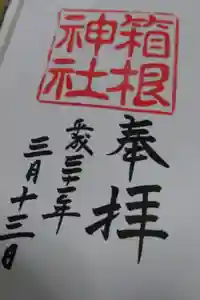 奉拝
箱根神社
平成三十一年
三月十三日